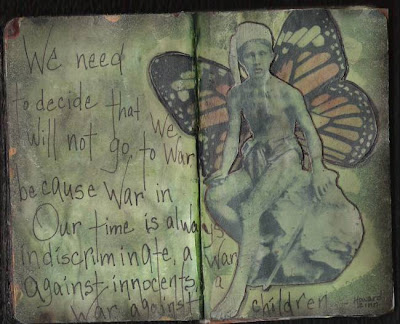 We need
to decide that We
will not go to War
because War in
Our time is always
indiscriminate, a War
against innocents, a
War against children...
Howard
Zinn